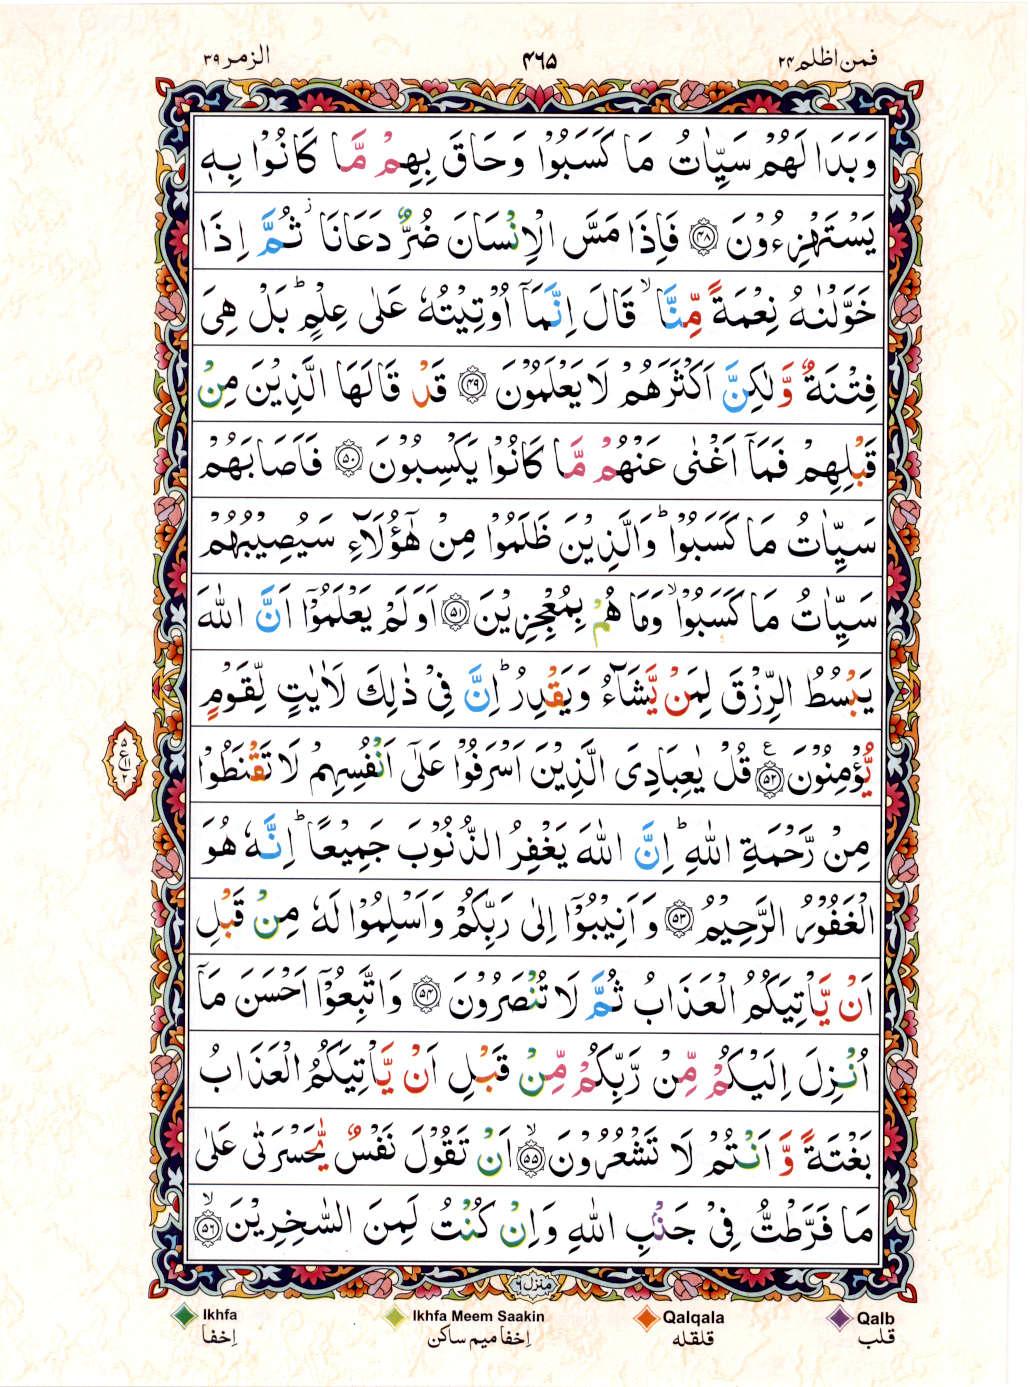 الزمر ٣٩
۴٦۵
فمن اظلم ٢۴
وَبَدَا لَهُمْ سَيِّاٰتُ مَا كَسَبُوْا وَحَاقَ بِهِمْ مَّا كَانُوْا بِهٖ
يَسْتَهْزِءُوْنَ ﴿۴۸﴾ فَاِذَا مَسَّ الْاِنْسَانَ ضُرٌّ دَعَانَا ؗ ثُمَّ اِذَا
خَوَّلْنٰهُ نِعْمَةً مِّنَّا ۙ قَالَ اِنَّمَاۤ اُوْتِيْتُهٗ عَلٰى عِلْمٍ ؕ بَلْ هِىَ
فِتْنَةٌ وَّلٰكِنَّ اَكْثَرَهُمْ لَا يَعْلَمُوْنَ ﴿۴۹﴾ قَدْ قَالَهَا الَّذِيْنَ مِنْ
قَبْلِهِمْ فَمَاۤ اَغْنٰى عَنْهُمْ مَّا كَانُوْا يَكْسِبُوْنَ ﴿۵۰﴾ فَاَصَابَهُمْ
سَيِّاٰتُ مَا كَسَبُوْا ؕ وَالَّذِيْنَ ظَلَمُوْا مِنْ هٰٓؤُلَآءِ سَيُصِيْبُهُمْ
سَيِّاٰتُ مَا كَسَبُوْا ۙ وَمَا هُمْ بِمُعْجِزِيْنَ ﴿۵۱﴾ اَوَلَمْ يَعْلَمُوْۤا اَنَّ اللّٰهَ
يَبْسُطُ الرِّزْقَ لِمَنْ يَّشَآءُ وَيَقْدِرُ ؕ اِنَّ فِىْ ذٰلِكَ لَاٰيٰتٍ لِّقَوْمٍ
يُّؤْمِنُوْنَ ﴿۵۲﴾ ع قُلْ يٰعِبَادِىَ الَّذِيْنَ اَسْرَفُوْا عَلٰٓى اَنْفُسِهِمْ لَا تَقْنَطُوْا
مِنْ رَّحْمَةِ اللّٰهِ ؕ اِنَّ اللّٰهَ يَغْفِرُ الذُّنُوْبَ جَمِيْعًا ؕ اِنَّهٗ هُوَ
الْغَفُوْرُ الرَّحِيْمُ ﴿۵۳﴾ وَاَنِيْبُوْۤا اِلٰى رَبِّكُمْ وَاَسْلِمُوْا لَهٗ مِنْ قَبْلِ
اَنْ يَّاْتِيَكُمُ الْعَذَابُ ثُمَّ لَا تُنْصَرُوْنَ ﴿۵۴﴾ وَاتَّبِعُوْۤا اَحْسَنَ مَاۤ
اُنْزِلَ اِلَيْكُمْ مِّنْ رَّبِّكُمْ مِّنْ قَبْلِ اَنْ يَّاْتِيَكُمُ الْعَذَابُ
بَغْتَةً وَّاَنْتُمْ لَا تَشْعُرُوْنَ ۙ﴿۵۵﴾ اَنْ تَقُوْلَ نَفْسٌ يّٰحَسْرَتٰى عَلٰى
مَا فَرَّطْتُّ فِىْ جَنْۢبِ اللّٰهِ وَاِنْ كُنْتُ لَمِنَ السّٰخِرِيْنَ ۙ﴿۵۶﴾
۵
ع
۱۱
۲
منزل ٦
Ikhfa
اِخفا
Ikhfa Meem Saakin
اِخفا میم ساکن
Qalqala
قلقله
Qalb
قلب